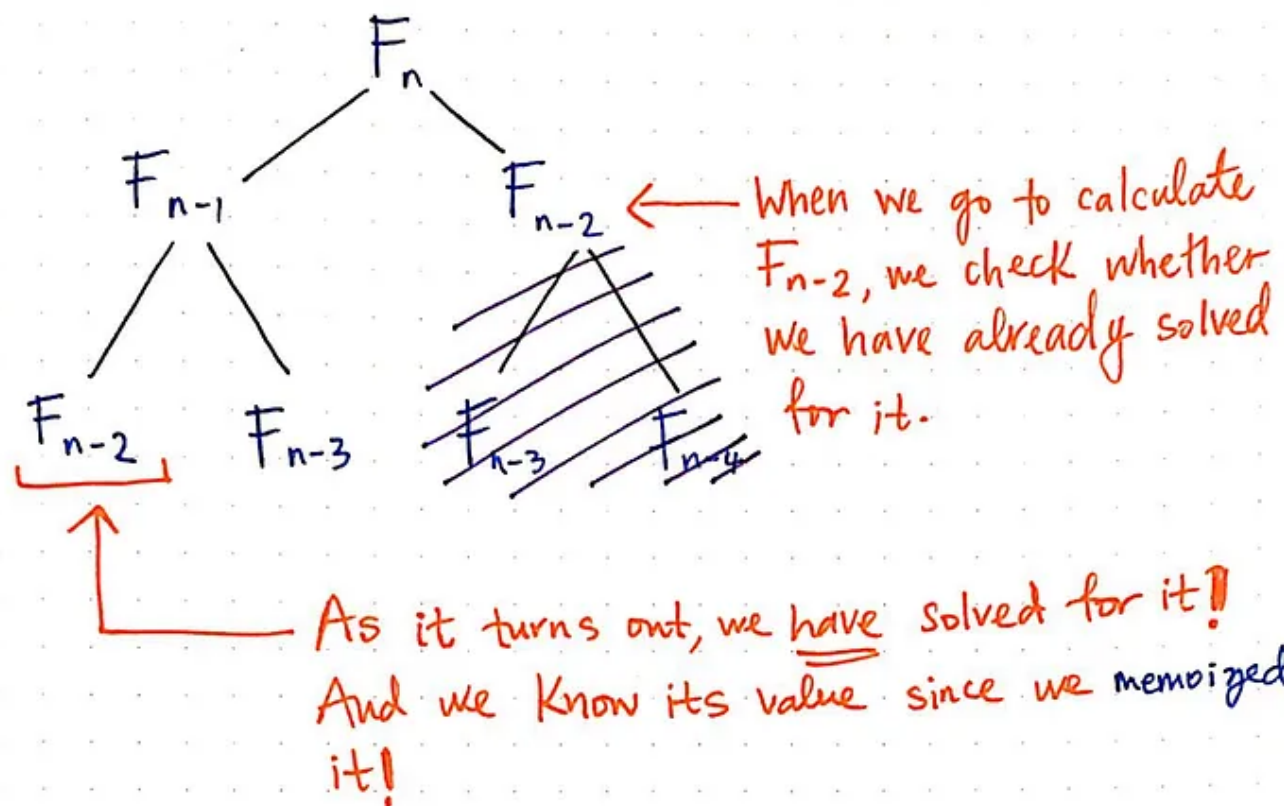 Fn
Fn-1
Fn-2
When we go to calculate
Fn-2, we check whether
we have already solved
for it.
Fn-2
Fn-3
Fn-3
Fn-4
As it turns out, we have solved for it!
And we know its value since we memoized
it!